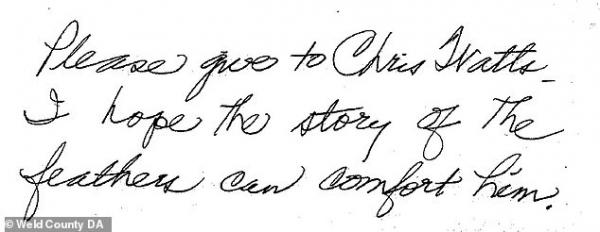 Please give to Chris Watts -
I hope the story of the
feathers can comfort him.
© Weld County DA